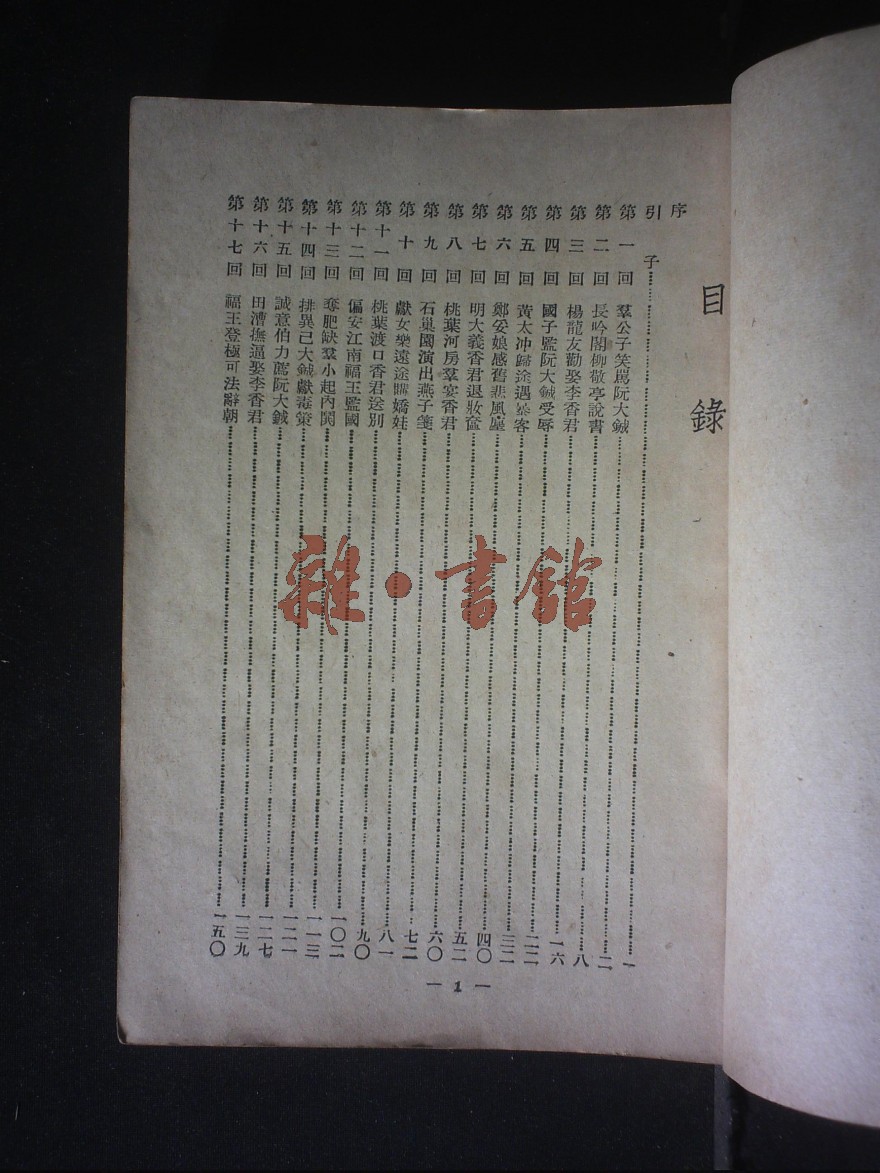 目錄
序
引子……一
第一回 羣公子笑罵阮大鋮……二
第二回 長吟閣柳敬亭說書……八
第三回 楊龍友勸娶李香君……一六
第四回 國子監阮大鋮受辱……二二
第五回 黃太冲歸途遇暴客……三二
第六回 鄭妥娘感舊悲風塵……四〇
第七回 明大義香君退妝奩……五二
第八回 桃葉河房羣宴香君……六〇
第九回 石巢園演出燕子箋……七二
第十回 獻女樂遠途購嬌娃……八一
第十一回 桃葉渡口香君送別……九〇
第十二回 偏安江南福王監國……一〇二
第十三回 奪肥缺羣小起內鬨……一一三
第十四回 排異己大鋮獻毒策……一二一
第十五回 誠意伯力薦阮大鋮……一二七
第十六回 田漕撫逼娶李香君……一三九
第十七回 福王登極可法辭朝……一五〇
— 1 —
雜·書館